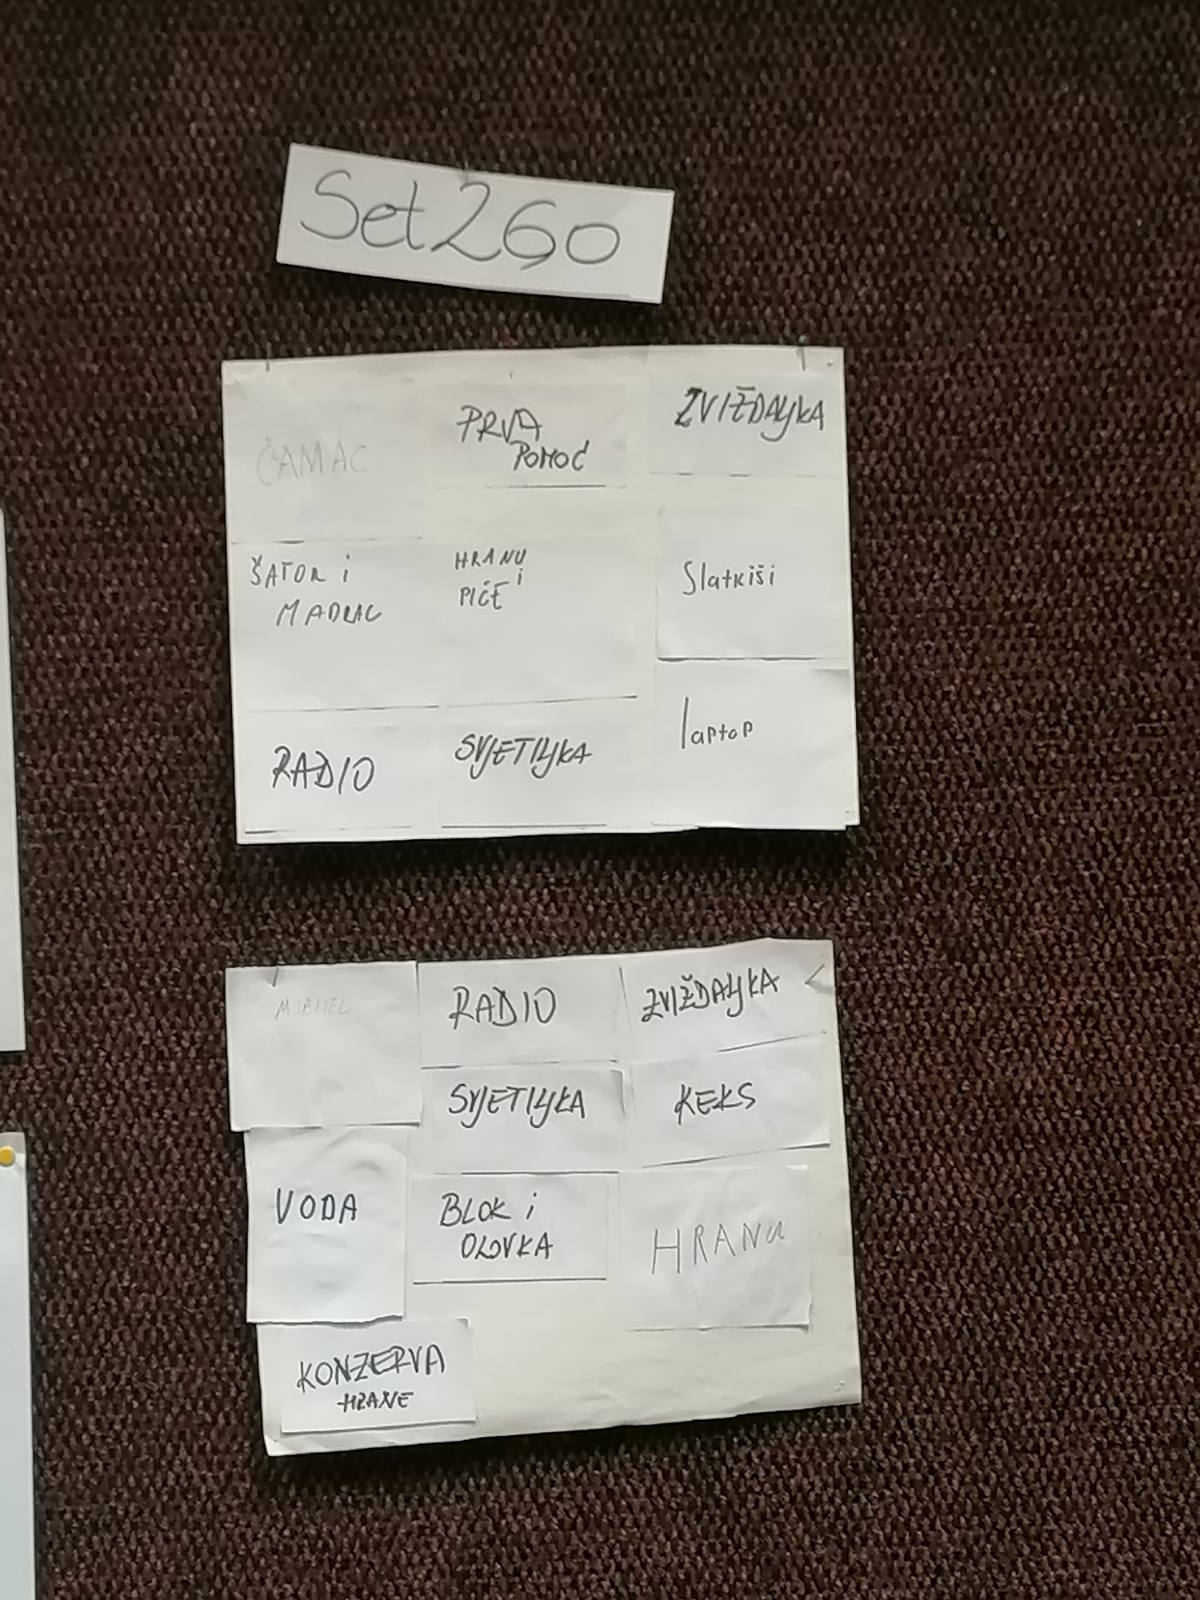 Set260
ČAMAC
PRVA
POMOĆ
ZVIŽDALJKA
ŠATOR i
MADRAC
HRANU
i
PIĆE
Slatkiši
RADIO
SVJETILJKA
laptop
MOBITEL
RADIO
ZVIŽDALJKA
SVJETILJKA
KEKS
VODA
BLOK i
OLOVKA
HRANU
KONZERVA
HRANE